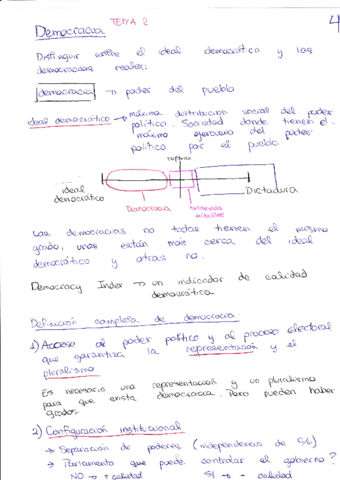 TEMA 2
4
Democracia
Distinguir entre el ideal democrático y las
democracias reales:
democracia → poder del pueblo
ideal democrático → máxima distribución social del poder
político. Sociedad donde tienen el
máximo ejercicio del poder
político por el pueblo
ruptura
ideal
democrático
Democracia
sistemas
híbridos
Dictadura
Las democracias no todas tienen el mismo
grado, unas están más cerca del ideal
democrático y otras no.
Democracy Index → un indicador de calidad
democrática
Definición completa de democracia
1) Acceso al poder político y al proceso electoral
que garantiza la representación y el
pluralismo
Es necesario una representación y un pluralismo
para que exista democracia. Pero pueden haber
grados.
2) Configuración institucional
→ Separación de poderes (independencia de
→ Parlamento que puede controlar el gobierno?
NO → + calidad SI → - calidad